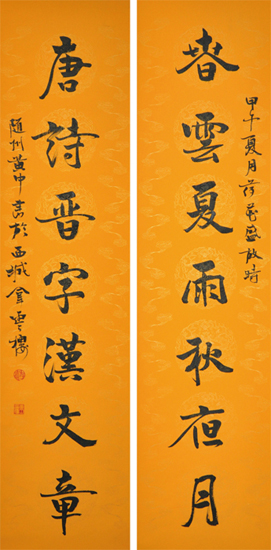 春雲夏雨秋夜月
甲午夏月荷花盛放時
唐詩晋字漢文章
随州黄中言於西城會雲樓